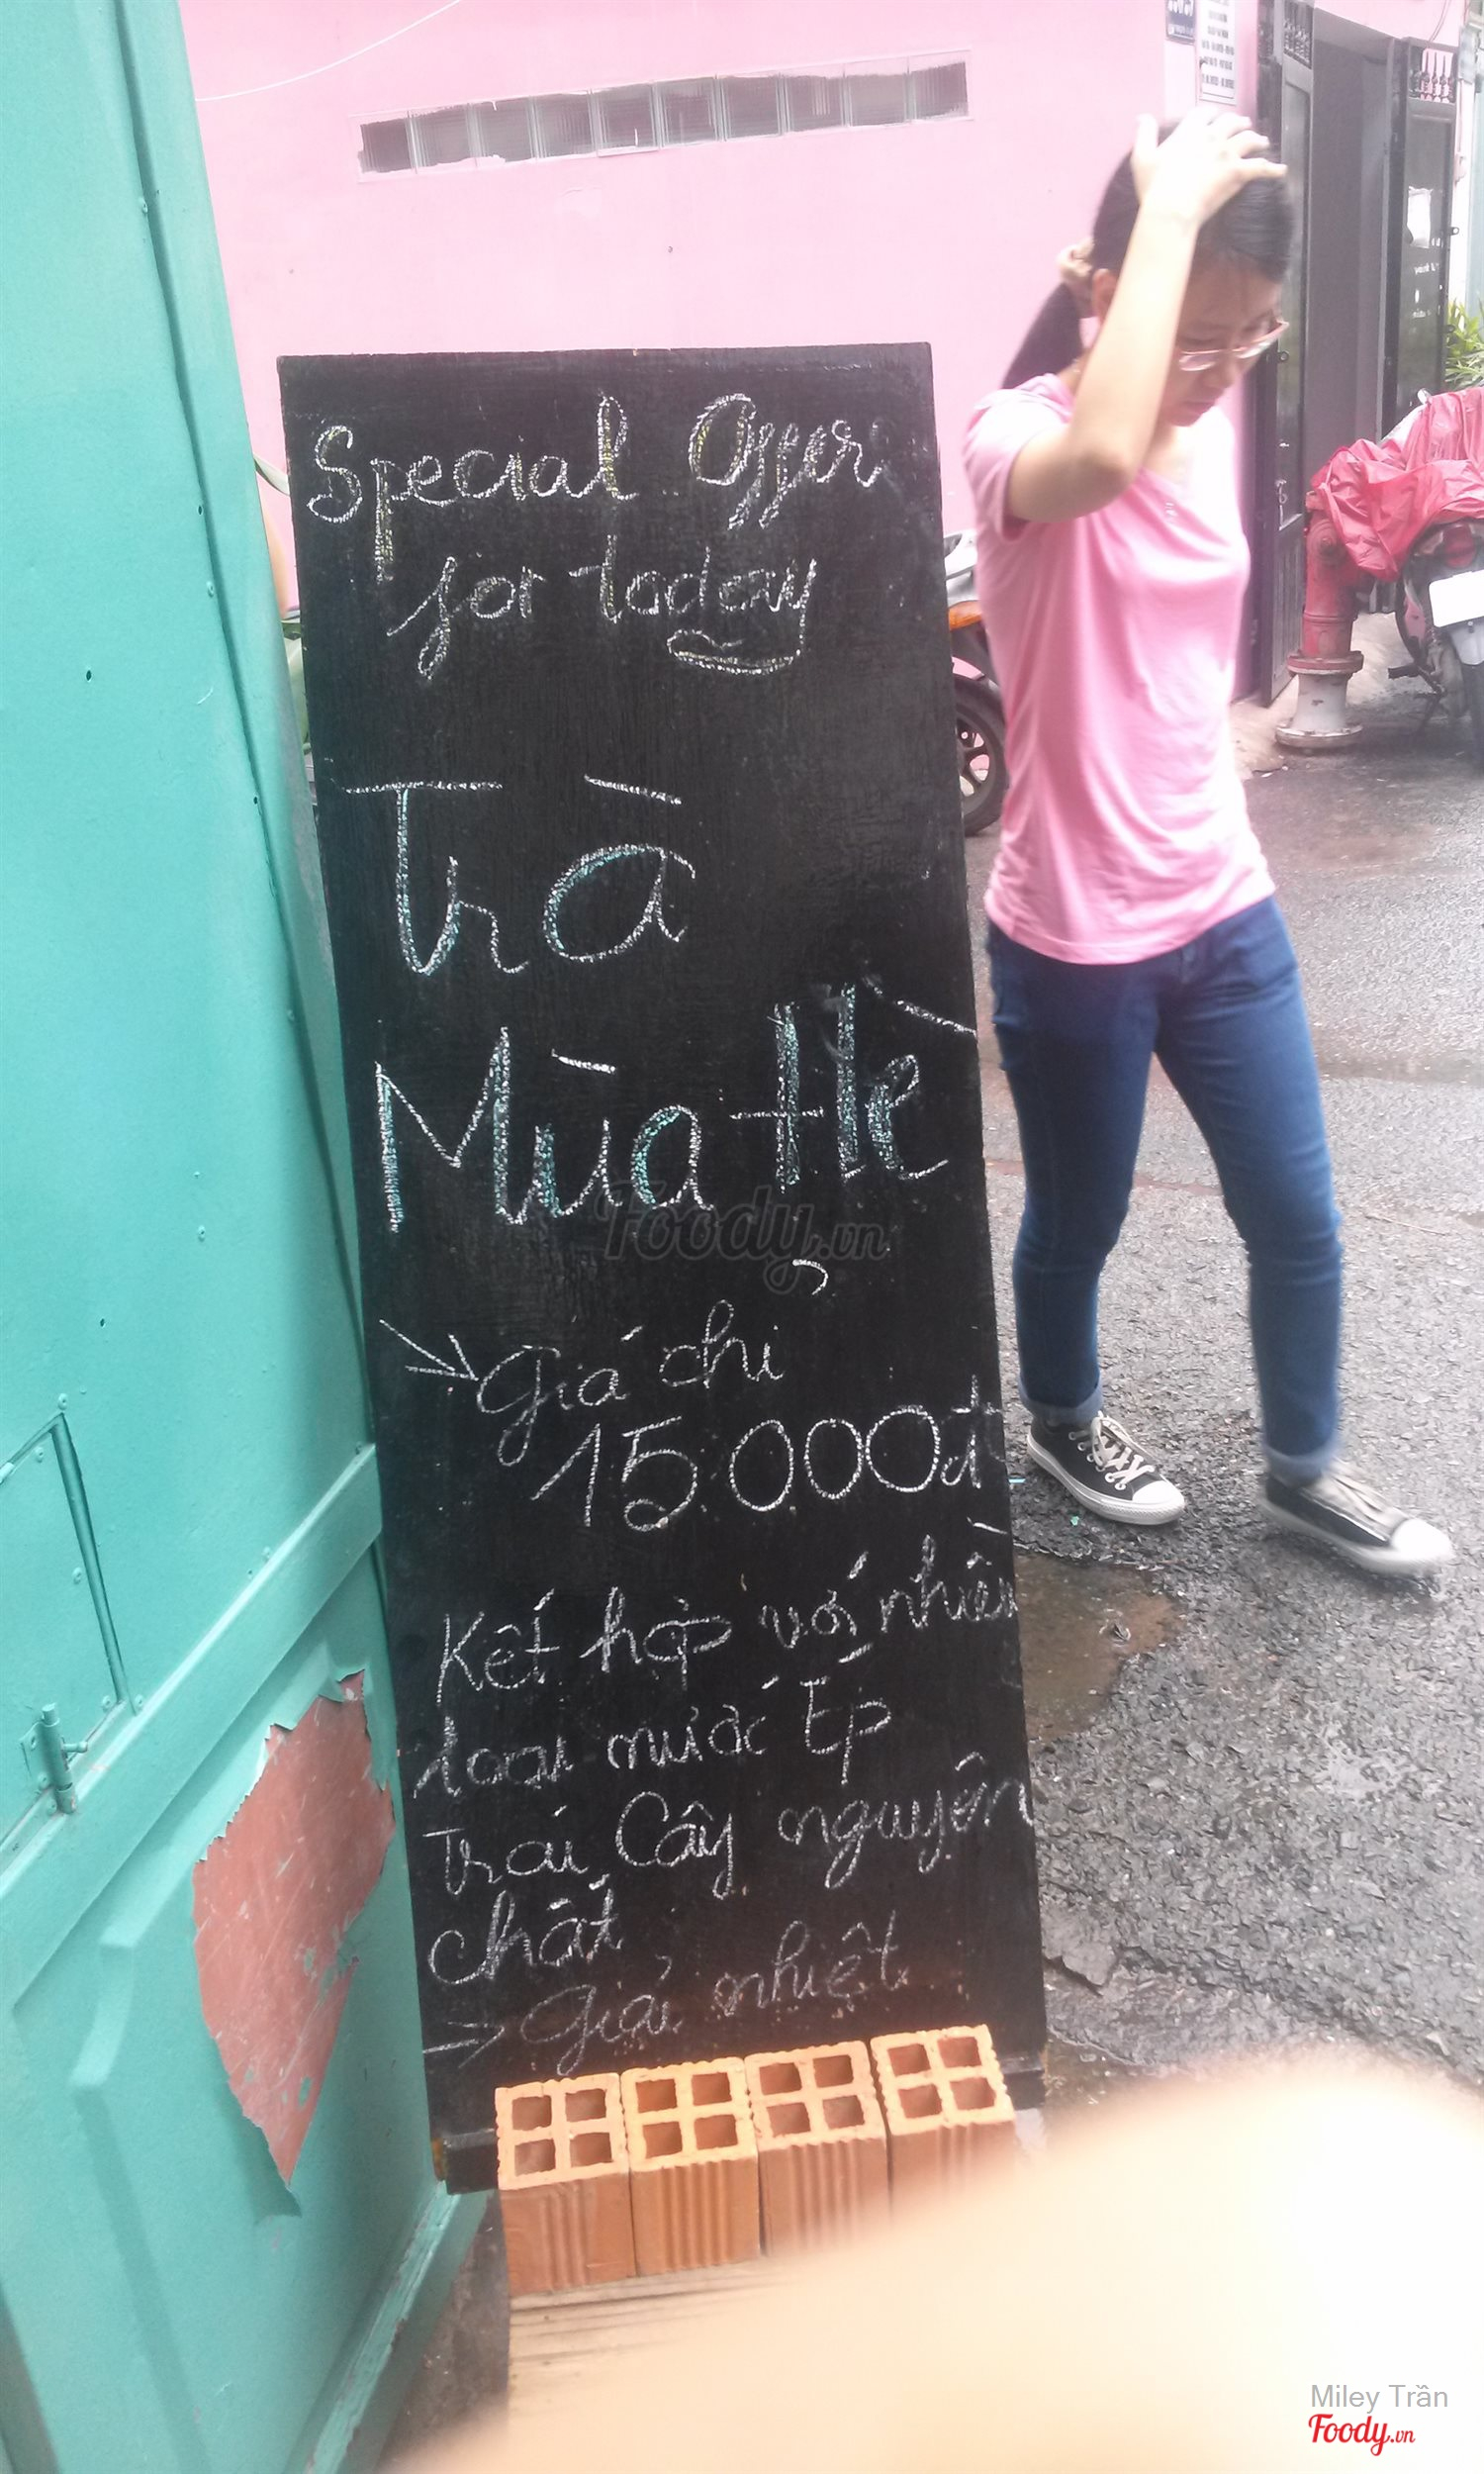 Special Offer
for today
Trà
Mùa Hè
Giá chỉ
15.000đ
Kết hợp với nhiều
loại nước ép
Trái Cây nguyên
chất
Giải nhiệt
Foody.vn
Miley Trần
Foody.vn